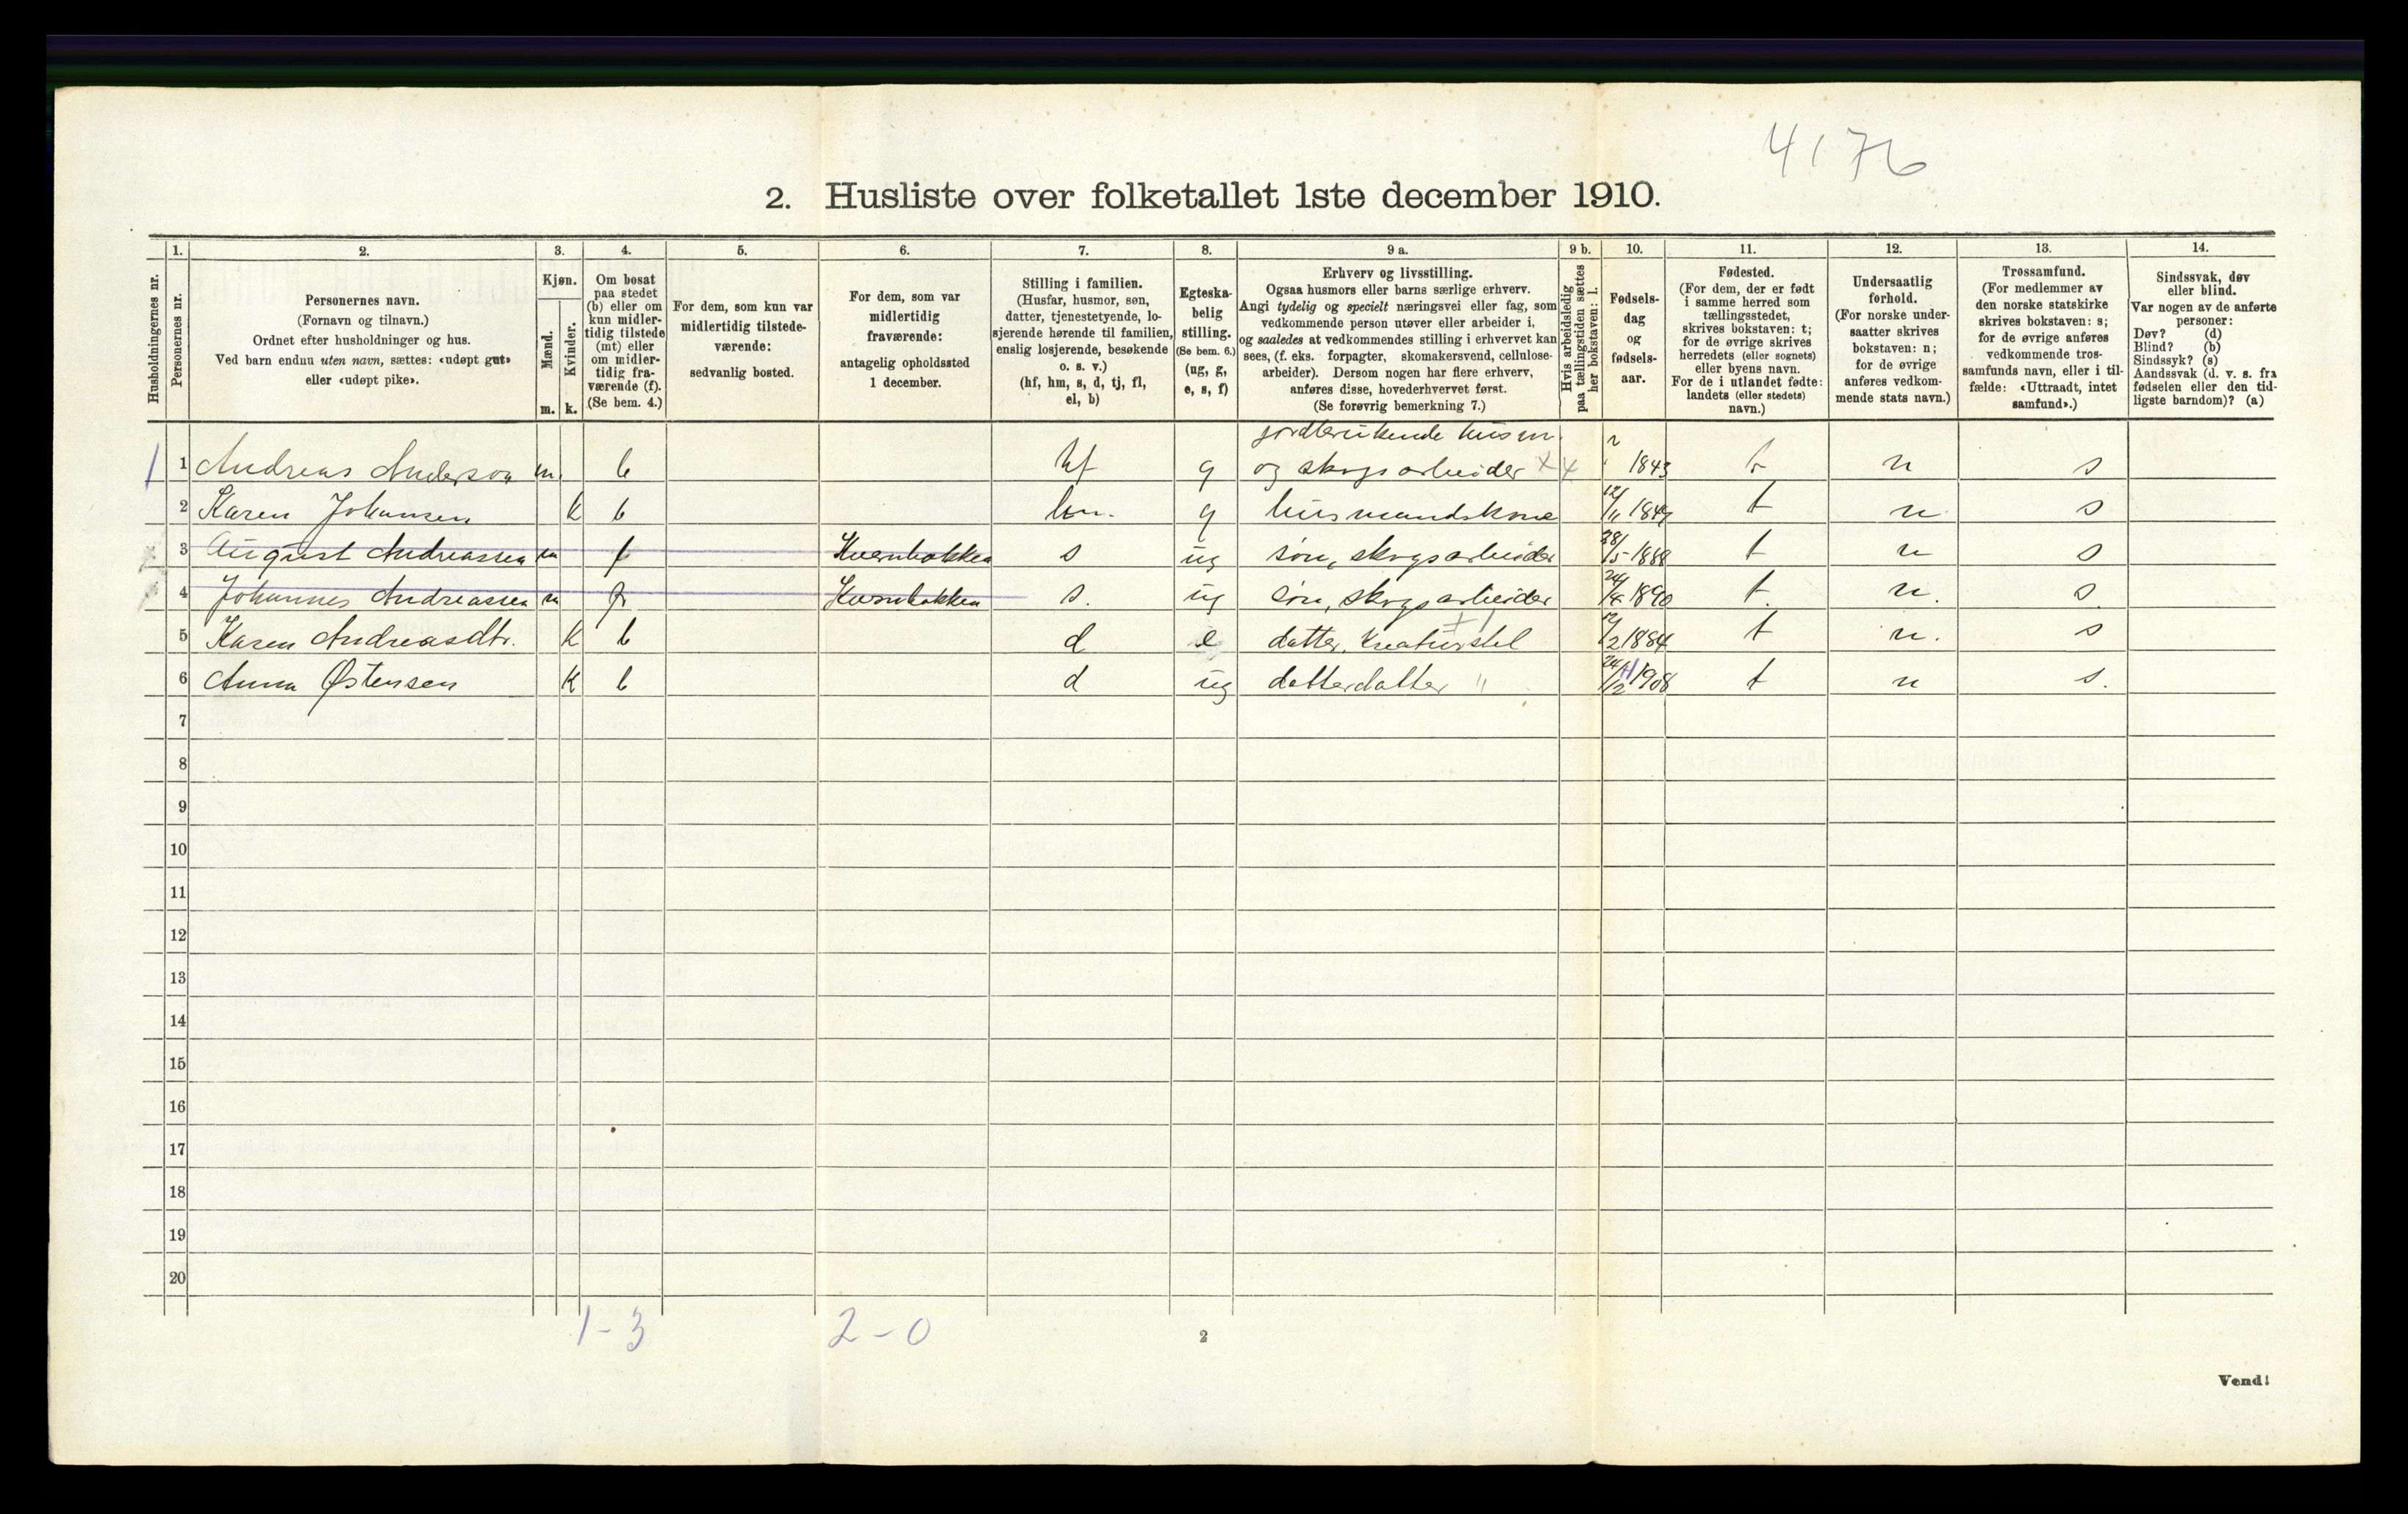 4176
2. Husliste over folketallet 1ste december 1910.
Husholdningernes nr.
1.
Personernes nr.
2.
Personernes navn.
(Fornavn og tilnavn.)
Ordnet efter husholdninger og hus.
Ved barn endnu uten navn, sættes: «udøpt gut»
eller «udøpt pike».
3.
Kjøn.
Mænd.
m.
Kvinder.
k.
4.
Om bosat
paa stedet
(b) eller om
kun midler-
tidig tilstede
(mt) eller
om midler-
tidig fra-
værende (f).
(Se bem. 4.)
5.
For dem, som kun var
midlertidig tilstede-
værende:
sedvanlig bosted.
6.
For dem, som var
midlertidig
fraværende:
antagelig opholdssted
1 december.
7.
Stilling i familien.
(Husfar, husmor, søn,
datter, tjenestetyende, lo-
sjerende hørende til familien,
enslig losjerende, besøkende
o. s. v.)
(hf, hm, s, d, tj, fl,
el, b)
8.
Egteska-
belig
stilling.
(Se bem. 6.)
(ug, g,
e, s, f)
9 a.
Erhverv og livsstilling.
Ogsaa husmors eller barns særlige erhverv.
Angi tydelig og specielt næringsvei eller fag, som
vedkommende person utøver eller arbeider i,
og saaledes at vedkommendes stilling i erhvervet kan
sees, (f. eks. forpagter, skomakersvend, cellulose-
arbeider). Dersom nogen har flere erhverv,
anføres disse, hovederhvervet først.
(Se forøvrig bemerkning 7.)
9 b.
Hvis arbeidsledig
paa tællingstiden sættes
her bokstaven: l.
10.
Fødsels-
dag
og
fødsels-
aar.
11.
Fødested.
(For dem, der er født
i samme herred som
tællingsstedet,
skrives bokstaven: t;
for de øvrige skrives
herredets (eller sognets)
eller byens navn.
For de i utlandet fødte:
landets (eller stedets)
navn.)
12.
Undersaatlig
forhold.
(For norske under-
saatter skrives
bokstaven: n;
for de øvrige
anføres vedkom-
mende stats navn.)
13.
Trossamfund.
(For medlemmer av
den norske statskirke
skrives bokstaven: s;
for de øvrige anføres
vedkommende tros-
samfunds navn, eller i til-
fælde: «Uttraadt, intet
samfund».)
14.
Sindssvak, døv
eller blind.
Var nogen av de anførte
personer:
Døv? (d)
Blind? (b)
Sindssyk? (s)
Aandssvak (d. v. s. fra
fødselen eller den tid-
ligste barndom)? (a)
jordbrukende husm.
1 1 Andreas Anderson m. b hf g og skogsarbeider 1843 t n s
2 Karen Johansen K b hm. g husmandskone 12/11 1849 t n s
3 August Andreassen m f Kvernbakken s ug søn, skogsarbeider 28/5 1888 t n s
4 Johannes Andreassen m f Kvernbakken s. ug søn, skogsarbeider 24/4 1890 t. n. s.
5 Karen Andreasdtr. K b d e datter. Kreaturstel /2 1884 t n. s
6 Anna Østensen K b d ug datterdatter " 24/12 1908 t n s.
7
8
9
10
11
12
13
14
15
16
17
18
19
20
1-3 2-0
2
Vend!